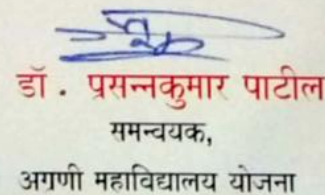 डॉ . प्रसन्नकुमार पाटील
समन्वयक,
अग्रणी महाविद्यालय योजना